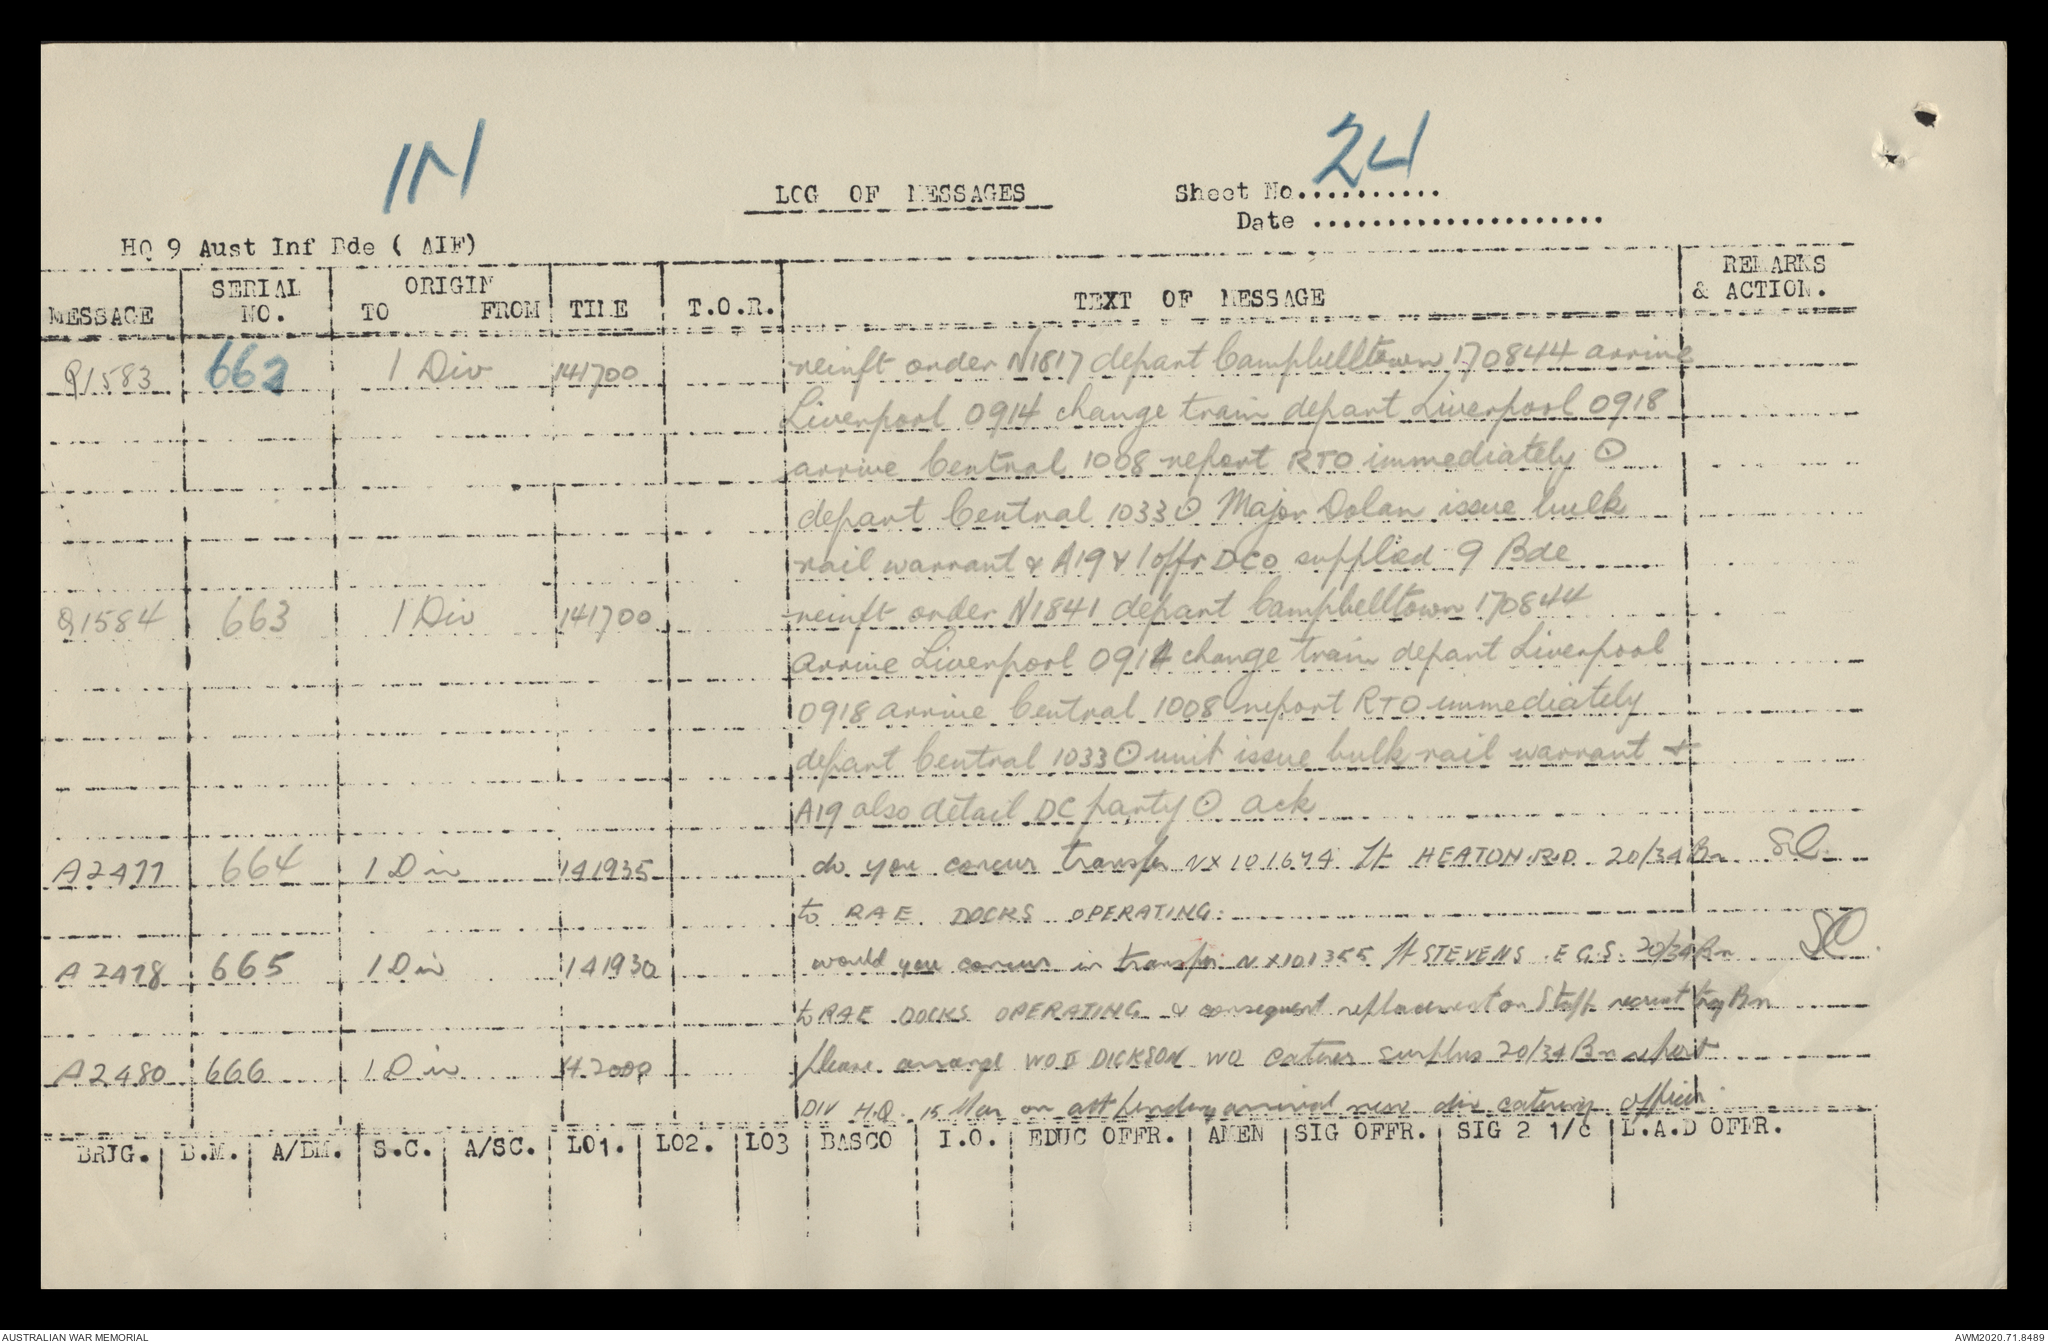 IN
24
LOG OF MESSAGES
Sheet No...........
Date .....................
HQ 9 Aust Inf Bde ( AIF)
MESSAGE SERIAL NO. ORIGIN TO FROM TIME T.O.R. TEXT OF MESSAGE REMARKS & ACTION.
Q1583 662 1 Div 141700 reinft order N1817 depart Campbelltown 170844 arrive
Liverpool 0914 change train depart Liverpool 0918
arrive Central 1008 report RTO immediately ⊙
depart Central 1033 ⊙ Major Dolan issue bulk
rail warrant & A19 & 1 offr DCO supplied 9 Bde
Q1584 663 1 Div 141700 reinft order N1841 depart Campbelltown 170844
arrive Liverpool 0914 change train depart Liverpool
0918 arrive Central 1008 report RTO immediately
depart Central 1033 ⊙ unit issue bulk rail warrant +
A19 also detail DC party ⊙ ack
A2477 664 1 Div 141935 do you concur transfer NX101674 Lt HEATON R.D. 20/34 Bn SC.
to RAE DOCKS OPERATING.
A2478 665 1 Div 141930 would you concur in transfer NX101355 Lt STEVENS E.G.S. 20/34 Bn SC.
to RAE DOCKS OPERATING & consequent replacement on Staff recruit trg Bn
A2480 666 1 Div 142000 please arrange WOII DICKSON WO caterer surplus 20/34 Bn report
DIV H.Q. 15 Mar on att pending arrival new div catering officer.
BRIG. B.M. A/BM. S.C. A/SC. LO1. LO2. LO3 BASCO I.O. EDUC OFFR. AMEN SIG OFFR. SIG 2 1/c L.A.D OFFR.
AUSTRALIAN WAR MEMORIAL
AWM2020.71.8489